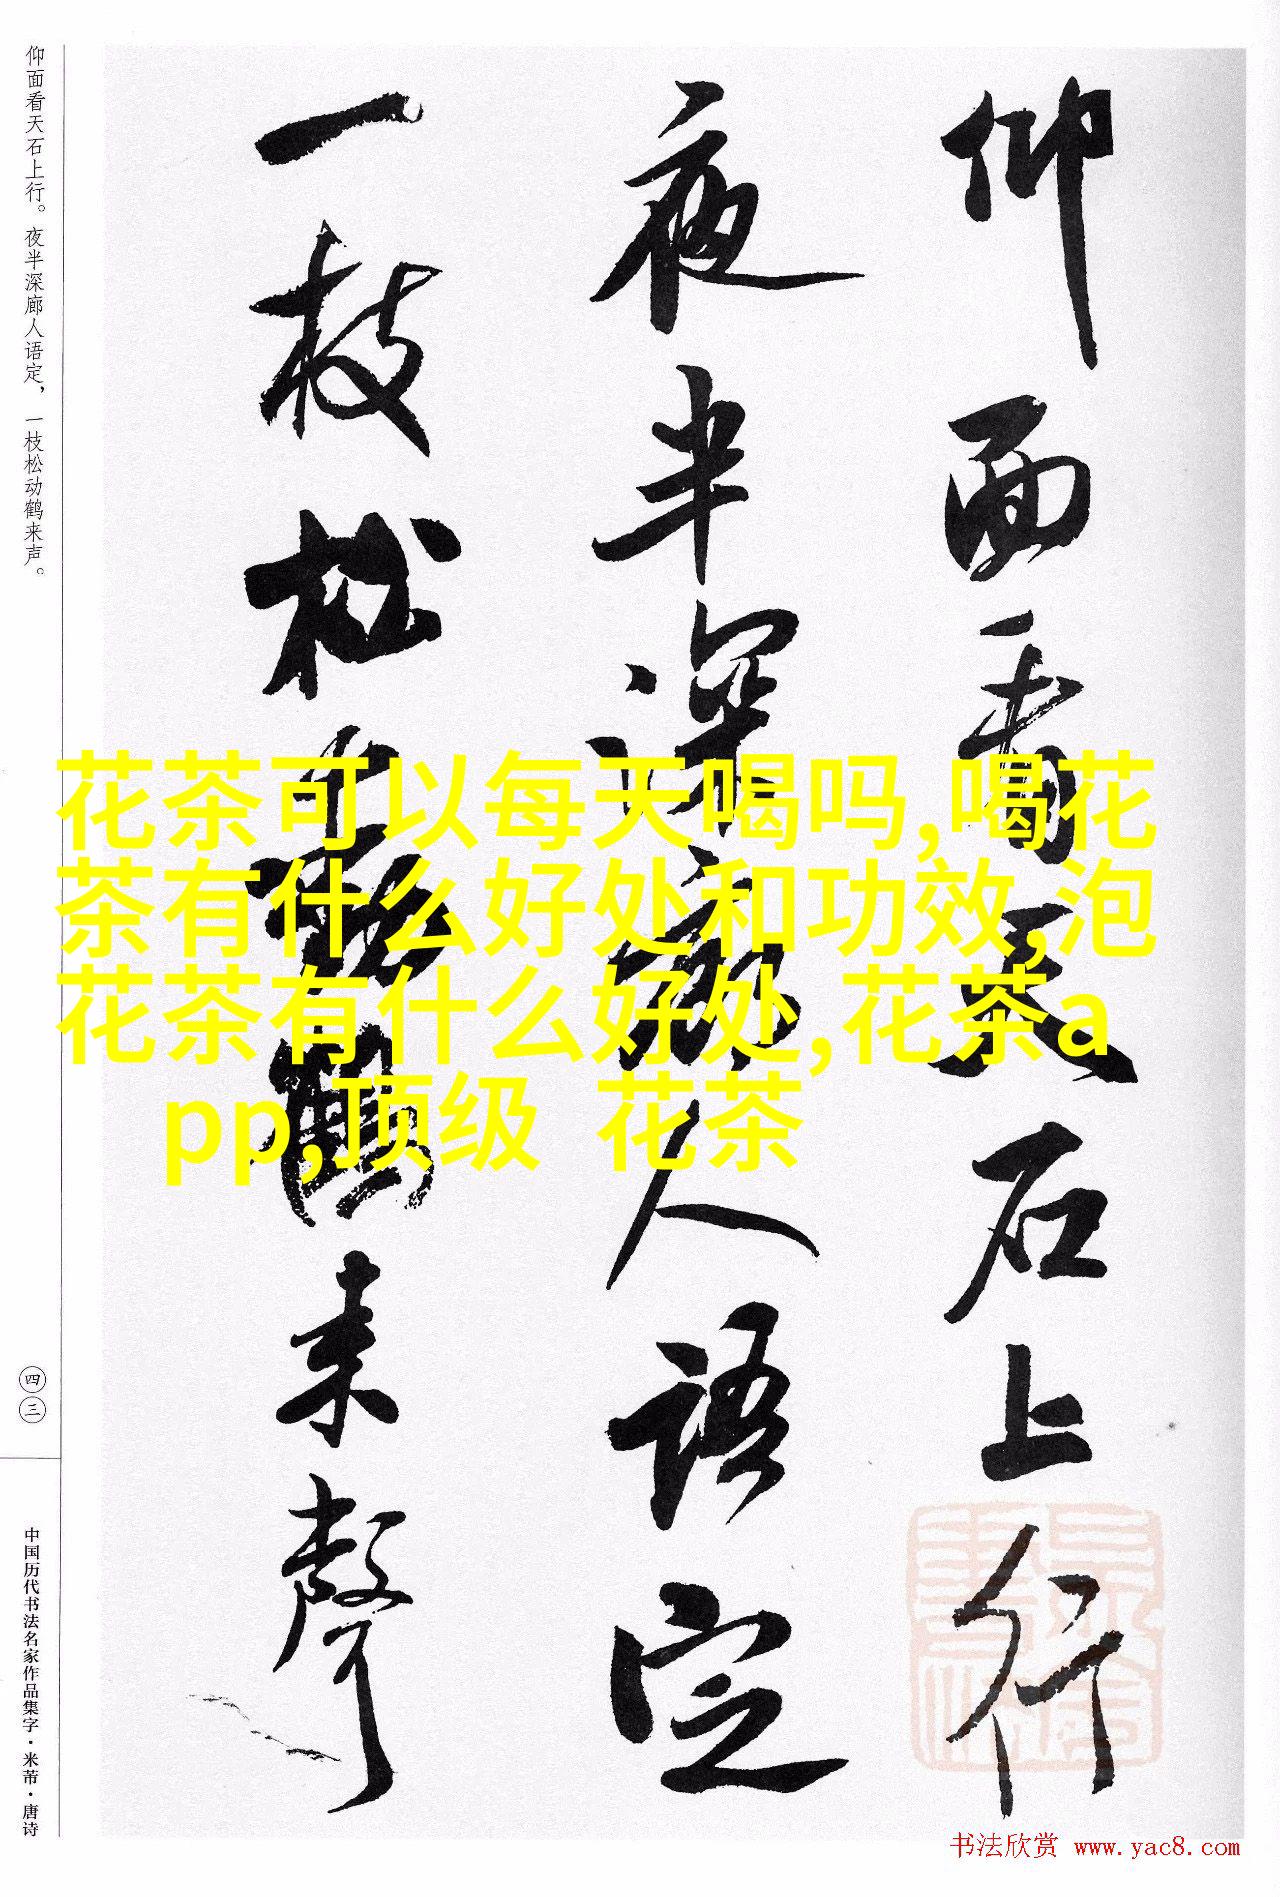 仰面看天石上行
夜半深廊人语定
一枝松动鹤来声
仰面看天石上行。夜半深廊人语定，一枝松动鹤来声。
花茶可以每天喝吗,喝花
茶有什么好处和功效,泡
花茶有什么好处,花茶a
pp,顶级 花茶
四三
中国历代书法名家作品集字·米芾·唐诗
书法欣赏 www.yac8.com